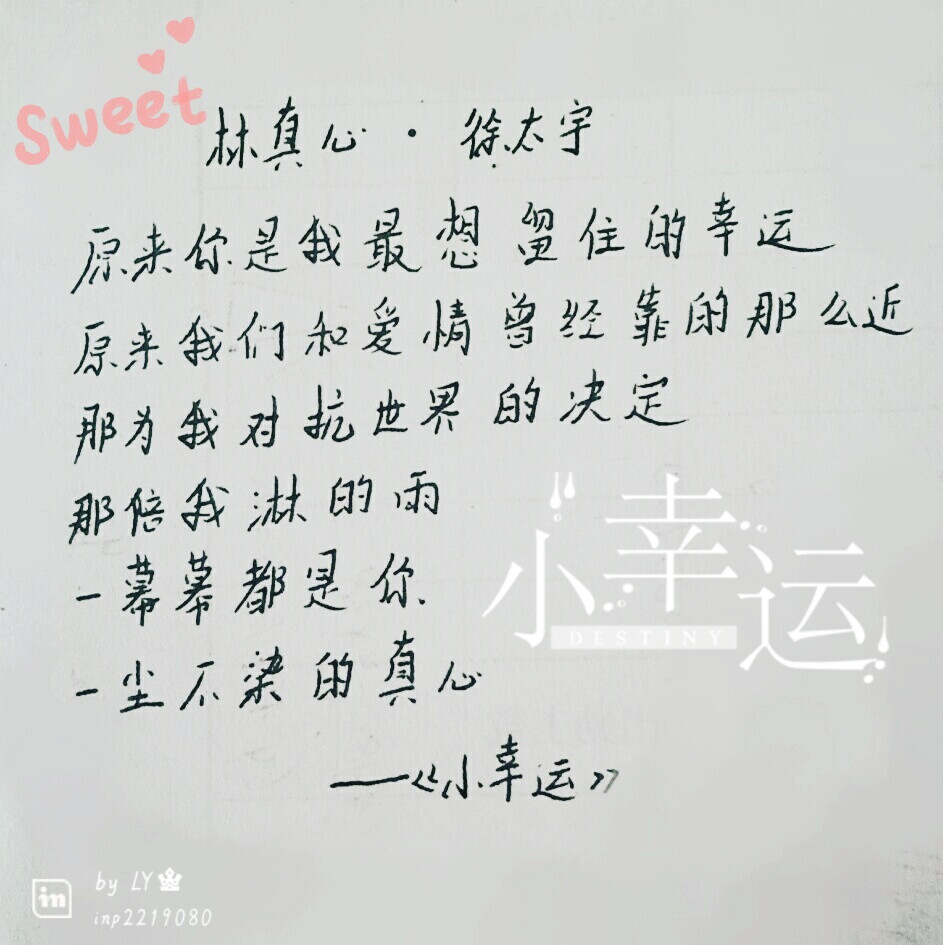 Sweet
林真心·徐太宇
原来你是我最想留住的幸运
原来我们和爱情曾经靠的那么近
那为我对抗世界的决定
那陪我淋的雨
一幕幕都是你
一尘不染的真心
——《小幸运》
小幸运
DESTINY
in
by LY
inp2219080